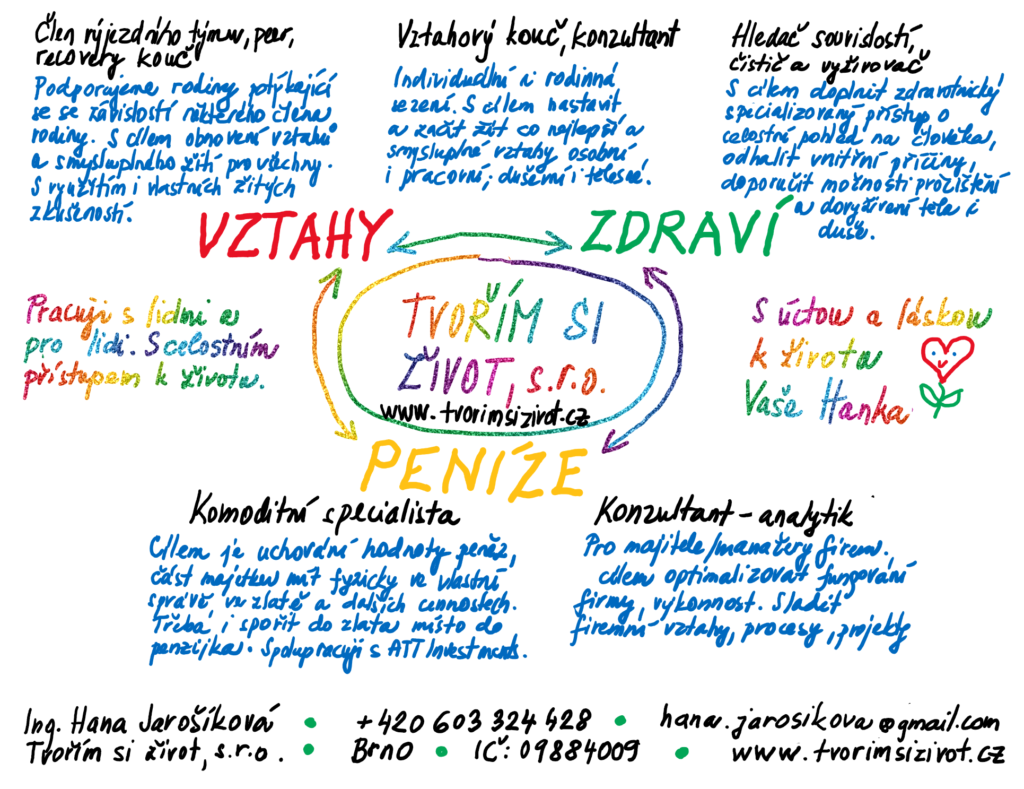 Člen výjezdního týmu, peer,
recovery kouč
Podporujeme rodiny potýkající
se se závislostí některého člena
rodiny. S cílem obnovení vztahů
a smysluplného žití pro všechny.
S využitím i vlastních žitých
zkušeností.
Vztahový kouč, konzultant
Individuální a rodinná
sezení. S cílem nastavit
a začít žít co nejlepší a
smysluplné vztahy osobní
i pracovní; duševní i tělesné.
Hledač souvislostí,
čistič a vyživovač
S cílem doplnit zdravotnický
specializovaný přístup o
celostní pohled na člověka,
odhalit vnitřní příčiny,
doporučit možnosti pročištění
a dovyživení těla i
duše.
VZTAHY
ZDRAVÍ
TVOŘÍM SI
ŽIVOT, s.r.o.
www.tvorimsizivot.cz
Pracuji s lidmi a
pro lidi. S celostním
přístupem k životu.
S úctou a láskou
k životu
Vaše Hanka
PENÍZE
Komoditní specialista
Cílem je uchování hodnoty peněz,
část majetku mít fyzicky ve vlastní
správě, ve zlatě a dalších cennostech.
Třeba i spořit do zlata místo do
penzijka. Spolupracuji s ATT Investments.
Konzultant - analytik
Pro majitele/manažery firem.
cílem optimalizovat fungování
firmy, výkonnost. Sladit
firemní vztahy, procesy, projekty
Ing. Hana Jarošíková • +420 603 324 428 • hana.jarosikova@gmail.com
Tvořím si život, s.r.o. • Brno • IČ: 09884009 • www.tvorimsizivot.cz